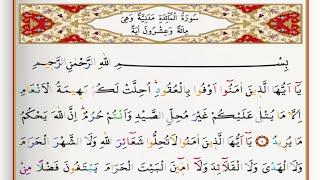 سُورَةُ الْمَائِدَةِ مَدَنِيَّةٌ وَهِيَ
مِائَةٌ وَعِشْرُونَ آيَةً
بِسْمِ اللهِ الرَّحْمٰنِ الرَّحِيمِ
يَا أَيُّهَا الَّذِينَ اٰمَنُوا أَوْفُوا بِالْعُقُودِ اُحِلَّتْ لَكُمْ بَهِيمَةُ الْاَنْعَامِ
اِلَّا مَا يُتْلٰى عَلَيْكُمْ غَيْرَ مُحِلِّي الصَّيْدِ وَاَنْتُمْ حُرُمٌ اِنَّ اللهَ يَحْكُمُ
مَا يُرِيدُ ۝١ يَا أَيُّهَا الَّذِينَ اٰمَنُوا لَا تُحِلُّوا شَعَائِرَ اللهِ وَلَا الشَّهْرَ الْحَرَامَ
وَلَا الْهَدْيَ وَلَا الْقَلَائِدَ وَلَا آمِّينَ الْبَيْتَ الْحَرَامَ يَبْتَغُونَ فَضْلًا مِنْ